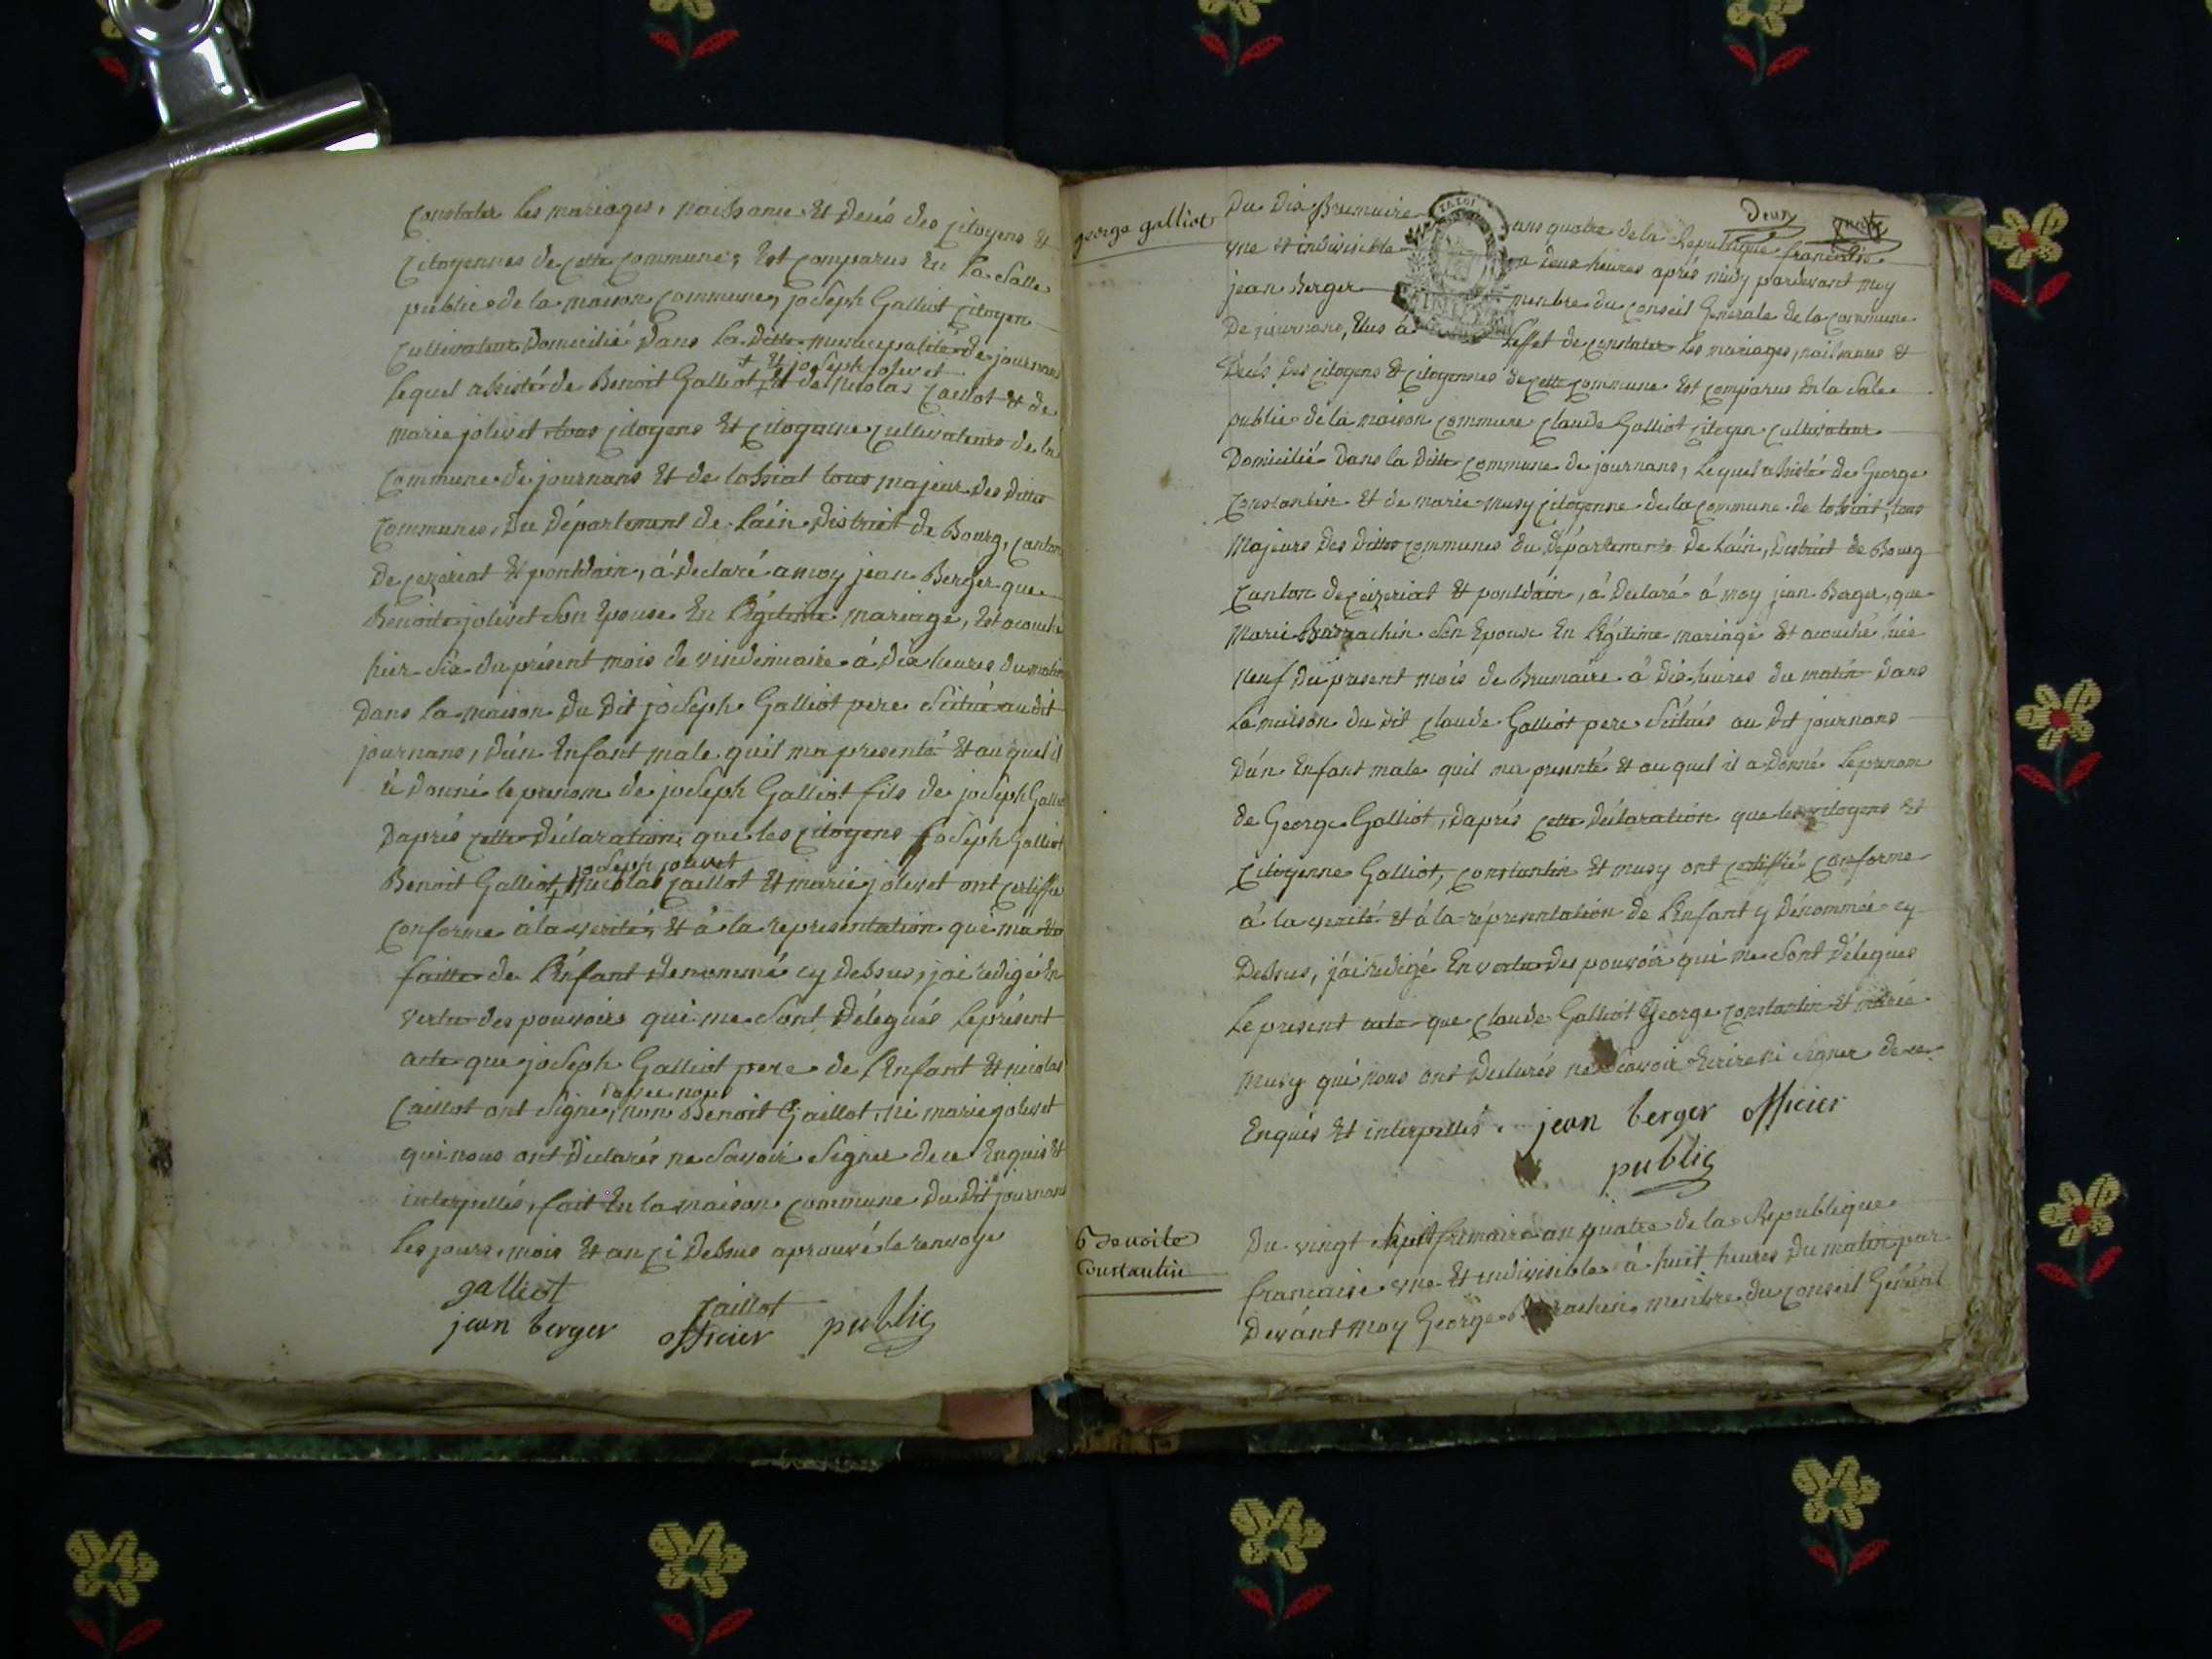 Constater les mariages, naissance et decés des citoyens et
citoyennes de cette commune, est comparus en la salle
public de la maison commune, joseph Galliot citoyen
cultivateur Domicilié dans la ditte municipalité de journans
+ et joseph jolivet
lequel assisté de Benoit Galliot + et de nicolas Caillot et de
marie jolivet tous citoyens et citoyenne cultivateurs de la
commune de journans et de tossiat tous majeur des dittes
communes, Du Département de Láin District de Bourg, canton
De cezeriat et pontdain, á declaré a moy jean Berger que
Benoite jolivet son Epouse en légitime mariage, est acouché
hier six du présent mois de vindemiaire á dix heures du matin
Dans la maison du dit joseph Galliot pere scitué au dit
journans, d'un enfant male quil ma presenté et au quel il
á donné le prenom de joseph Galliot fils de joseph Galliot
Daprés cette déclaration que les citoyens joseph Galliot
joseph jolivet
Benoit Galliot + nicolas Caillot et marie jolivet ont certiffié
conforme á la verité, et á la representation qui ma été
faitte de l'énfant denommé cy dessus, jai redigé en
vertu des pouvoirs qui me sont délegués le présent
acte que joseph Galliot pere de l'enfant et nicolas
avec nous
Caillot ont signé, non Benoit Gaillot, ni marie jolivet
qui nous ont déclarés ne savoir signer de ce enquis et
interpellés, fait en la maison commune du dit journans
les jours, mois et an ci dessus aprouvé le renvoye
galliot
Caillot
jean berger officier public
Deux quatre
george galliot
Du Dix Brumaire ans quatre de la Republique francaise
une et indivisible a deux heures aprés midy pardevant moy
jean Berger membre du conseil Generale de la commune
De journans, élus á l'effet de constater les mariages, naissances et
Decés des citoyens et citoyennes de cette commune est comparus en la sale
public de la maison commune claude Galliot citoyen cultivateur
Domicilié dans la ditte commune de journans, lequel assisté de George
Constantin et de marie musy citoyenne de la commune de tossiat, tous
Majeurs des dittes communes du départements de Láin, District de Bourg
Canton de ceizeriat et pontdain, á declaré á moy jean Berger, que
Marie Barrachin son Epouse en légitime mariage et acouché hier
neuf du present mois de Brumaire á dix heures du matin dans
La maison du dit claude Galliot pere scitués au dit journans
D'un enfant male quil ma presenté et au quel il a donné le prenom
de George Galliot, daprés cette déclaration que les citoyens et
citoyenne Galliot, constantin et musy ont certiffié conforme
á la verité et á la répresentation de l'enfant cy dénommée cy
Dessus, j'ai redigé en vertu des pouvoir qui me sont délegués
Le present acte que claude Galliot George constantin et marie
musy qui nous ont declarés ne scavoir ecrire ni signer de ce
enquis et interpellés. jean berger officier
public
Benoite
Constantin
Du vingt huit frimaire an quatre de la Republique
francaise une et indivisible á huit heures du matin par
Devánt moy George Barrachin membre du conseil Général